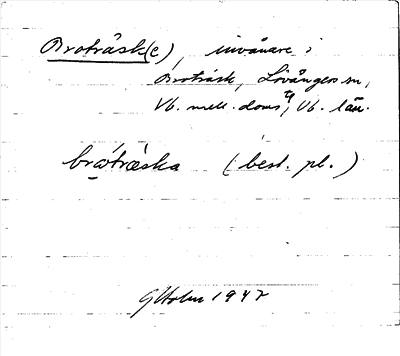 Broträsk(e), invånare i
Broträsk, Lövångers sn,
Vb. mell. doms. tg, Vb. län.
brώtræska (best. pl.)
G Holm 1947